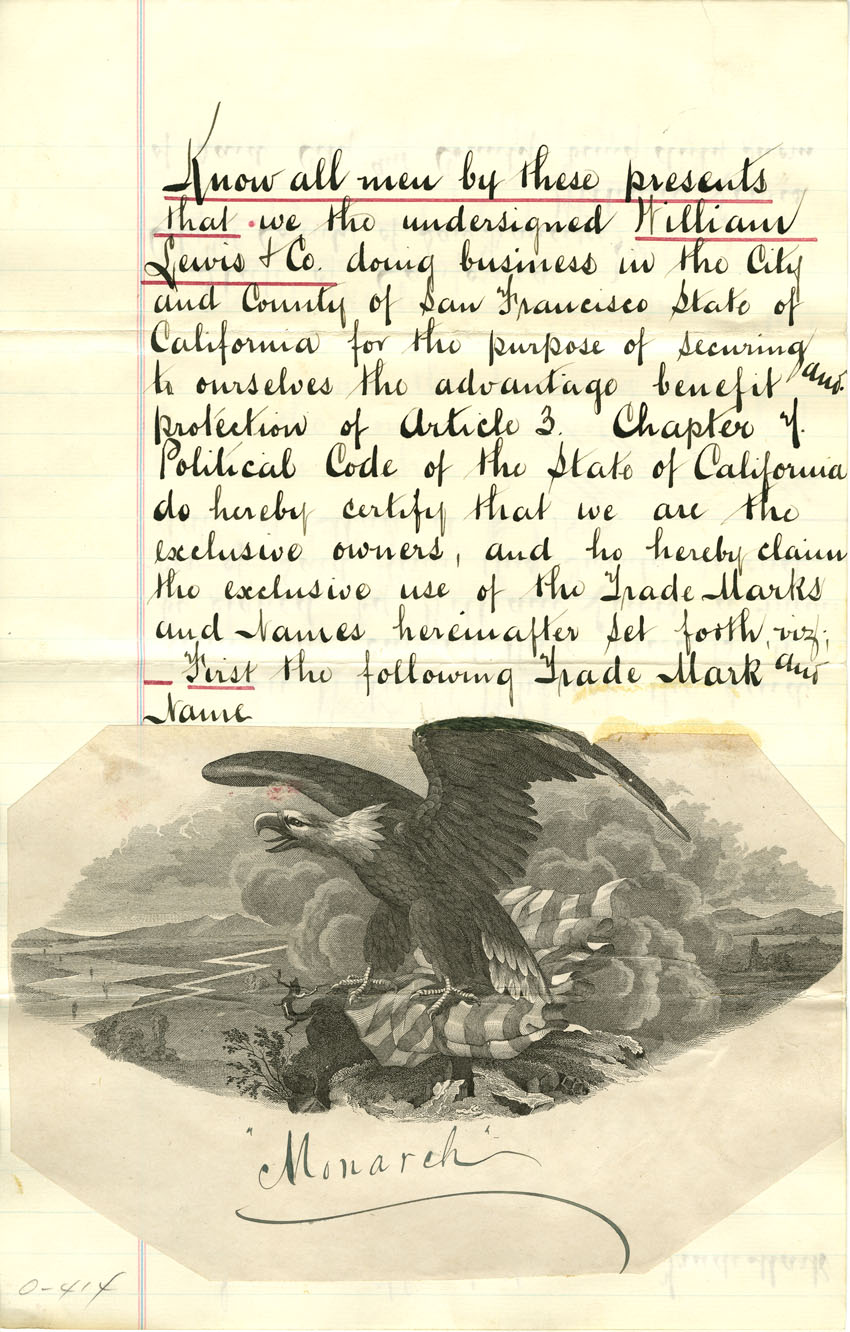 Know all men by these presents
that we the undersigned William
Lewis & Co. doing business in the City
and County of San Francisco State of
California for the purpose of securing
to ourselves the advantage benefit and
protection of Article 3. Chapter 7.
Political Code of the State of California
do hereby certify that we are the
exclusive owners, and ho hereby claim
the exclusive use of the Trade Marks
and Names hereinafter set forth, viz;
First the following Trade Mark and
Name
"Monarch"
0-414